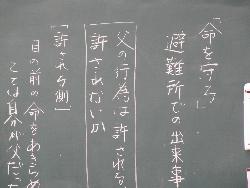 「命を守る」
避難所での出来事
父の行為は許される
許されないか
「許される側」
目の前の命をあきらめ
こては自分が父だった